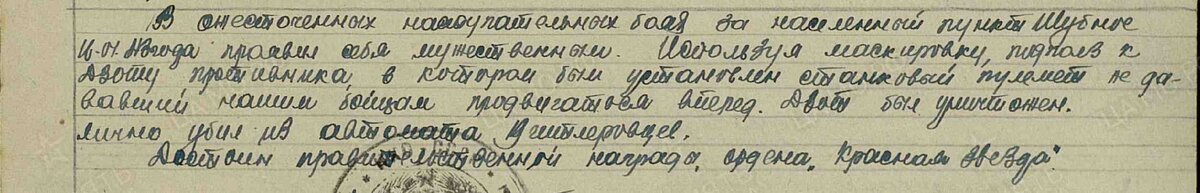 В ожесточенных наступательных боях за населенный пункт Шубное
проявил себя мужественным. Используя маскировку, подполз к
Дзоту противника, в котором был установлен станковый пулемет не да-
вавший нашим бойцам продвигаться вперед. Дзот был уничтожен.
лично убил из автомата гитлеровцев.
Достоин правительственной награды, ордена „Красная звезда"